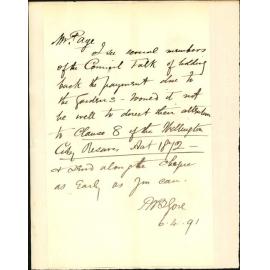 Mr Page
I see several members
of the Council talk of holding
back the payment due to
the Gardens - would it not
be well to direct their attention
to Clause 8 of the Wellington
City Reserves Act 1872 —
& send along the cheque
as Early as you can.
6.4.91